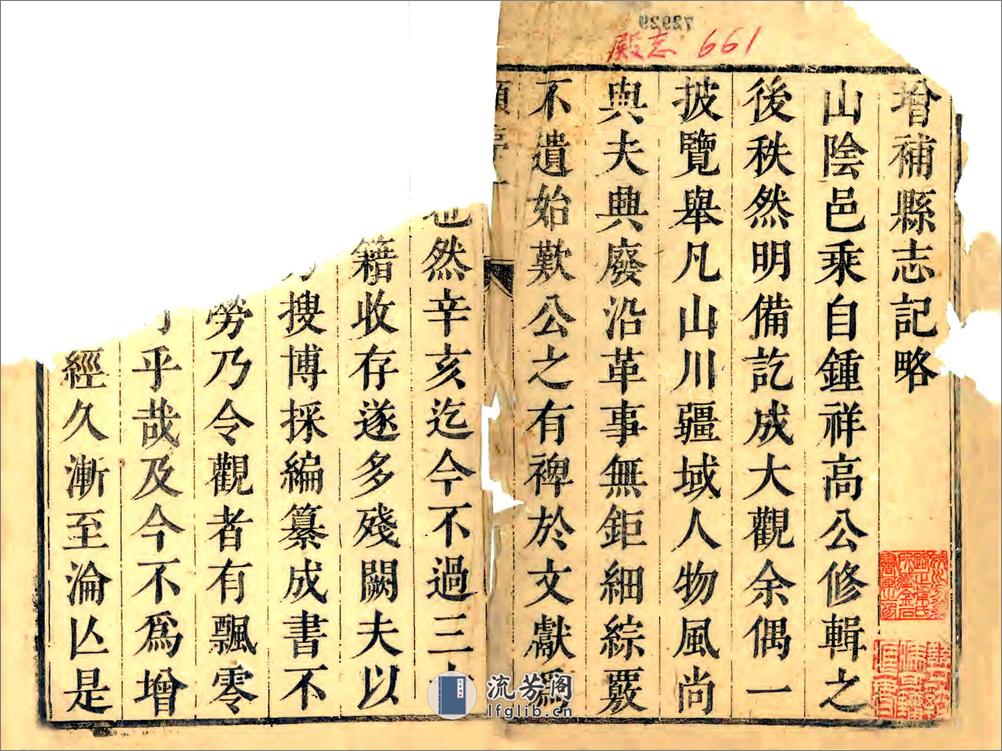 殿志 661
73929
增補縣志記略
山陰邑乘自鍾祥高公修輯之
後秩然明備訖成大觀余偶一
披覽舉凡山川疆域人物風尚
與夫典廢沿革事無鉅細綜覈
不遺始歎公之有裨於文獻爲
也然辛亥迄今不過三
籍收存遂多殘闕夫以
搜博採編纂成書不
勞乃令觀者有飄零
乎哉及今不爲增
經久漸至淪亾是
流芳阁
lfglib.cn